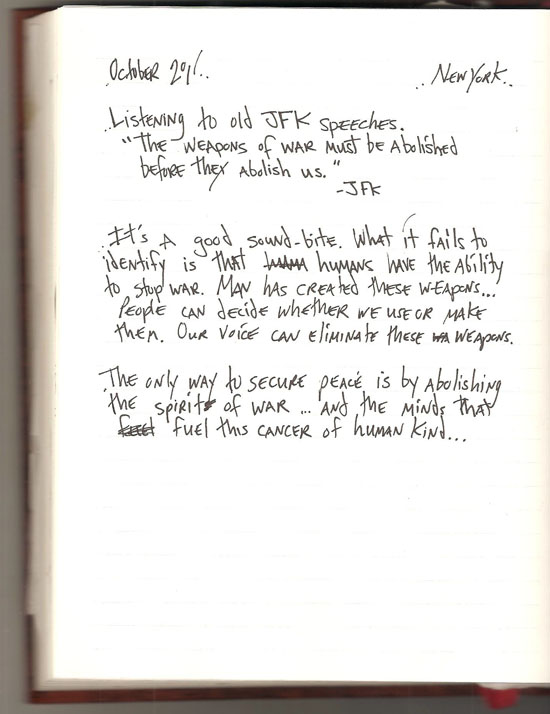 October 2011..
..New York..
..Listening to old JFK speeches.
"The weapons of war must be abolished
before they abolish us."
-JFK
..It's a good sound-bite. What it fails to
identify is that humans have the ability
to stop war. Man has created these weapons...
People can decide whether we use or make
them. Our voice can eliminate these weapons.
The only way to secure peace is by abolishing
the spirit of war ... and the minds that
fuel this cancer of human kind...